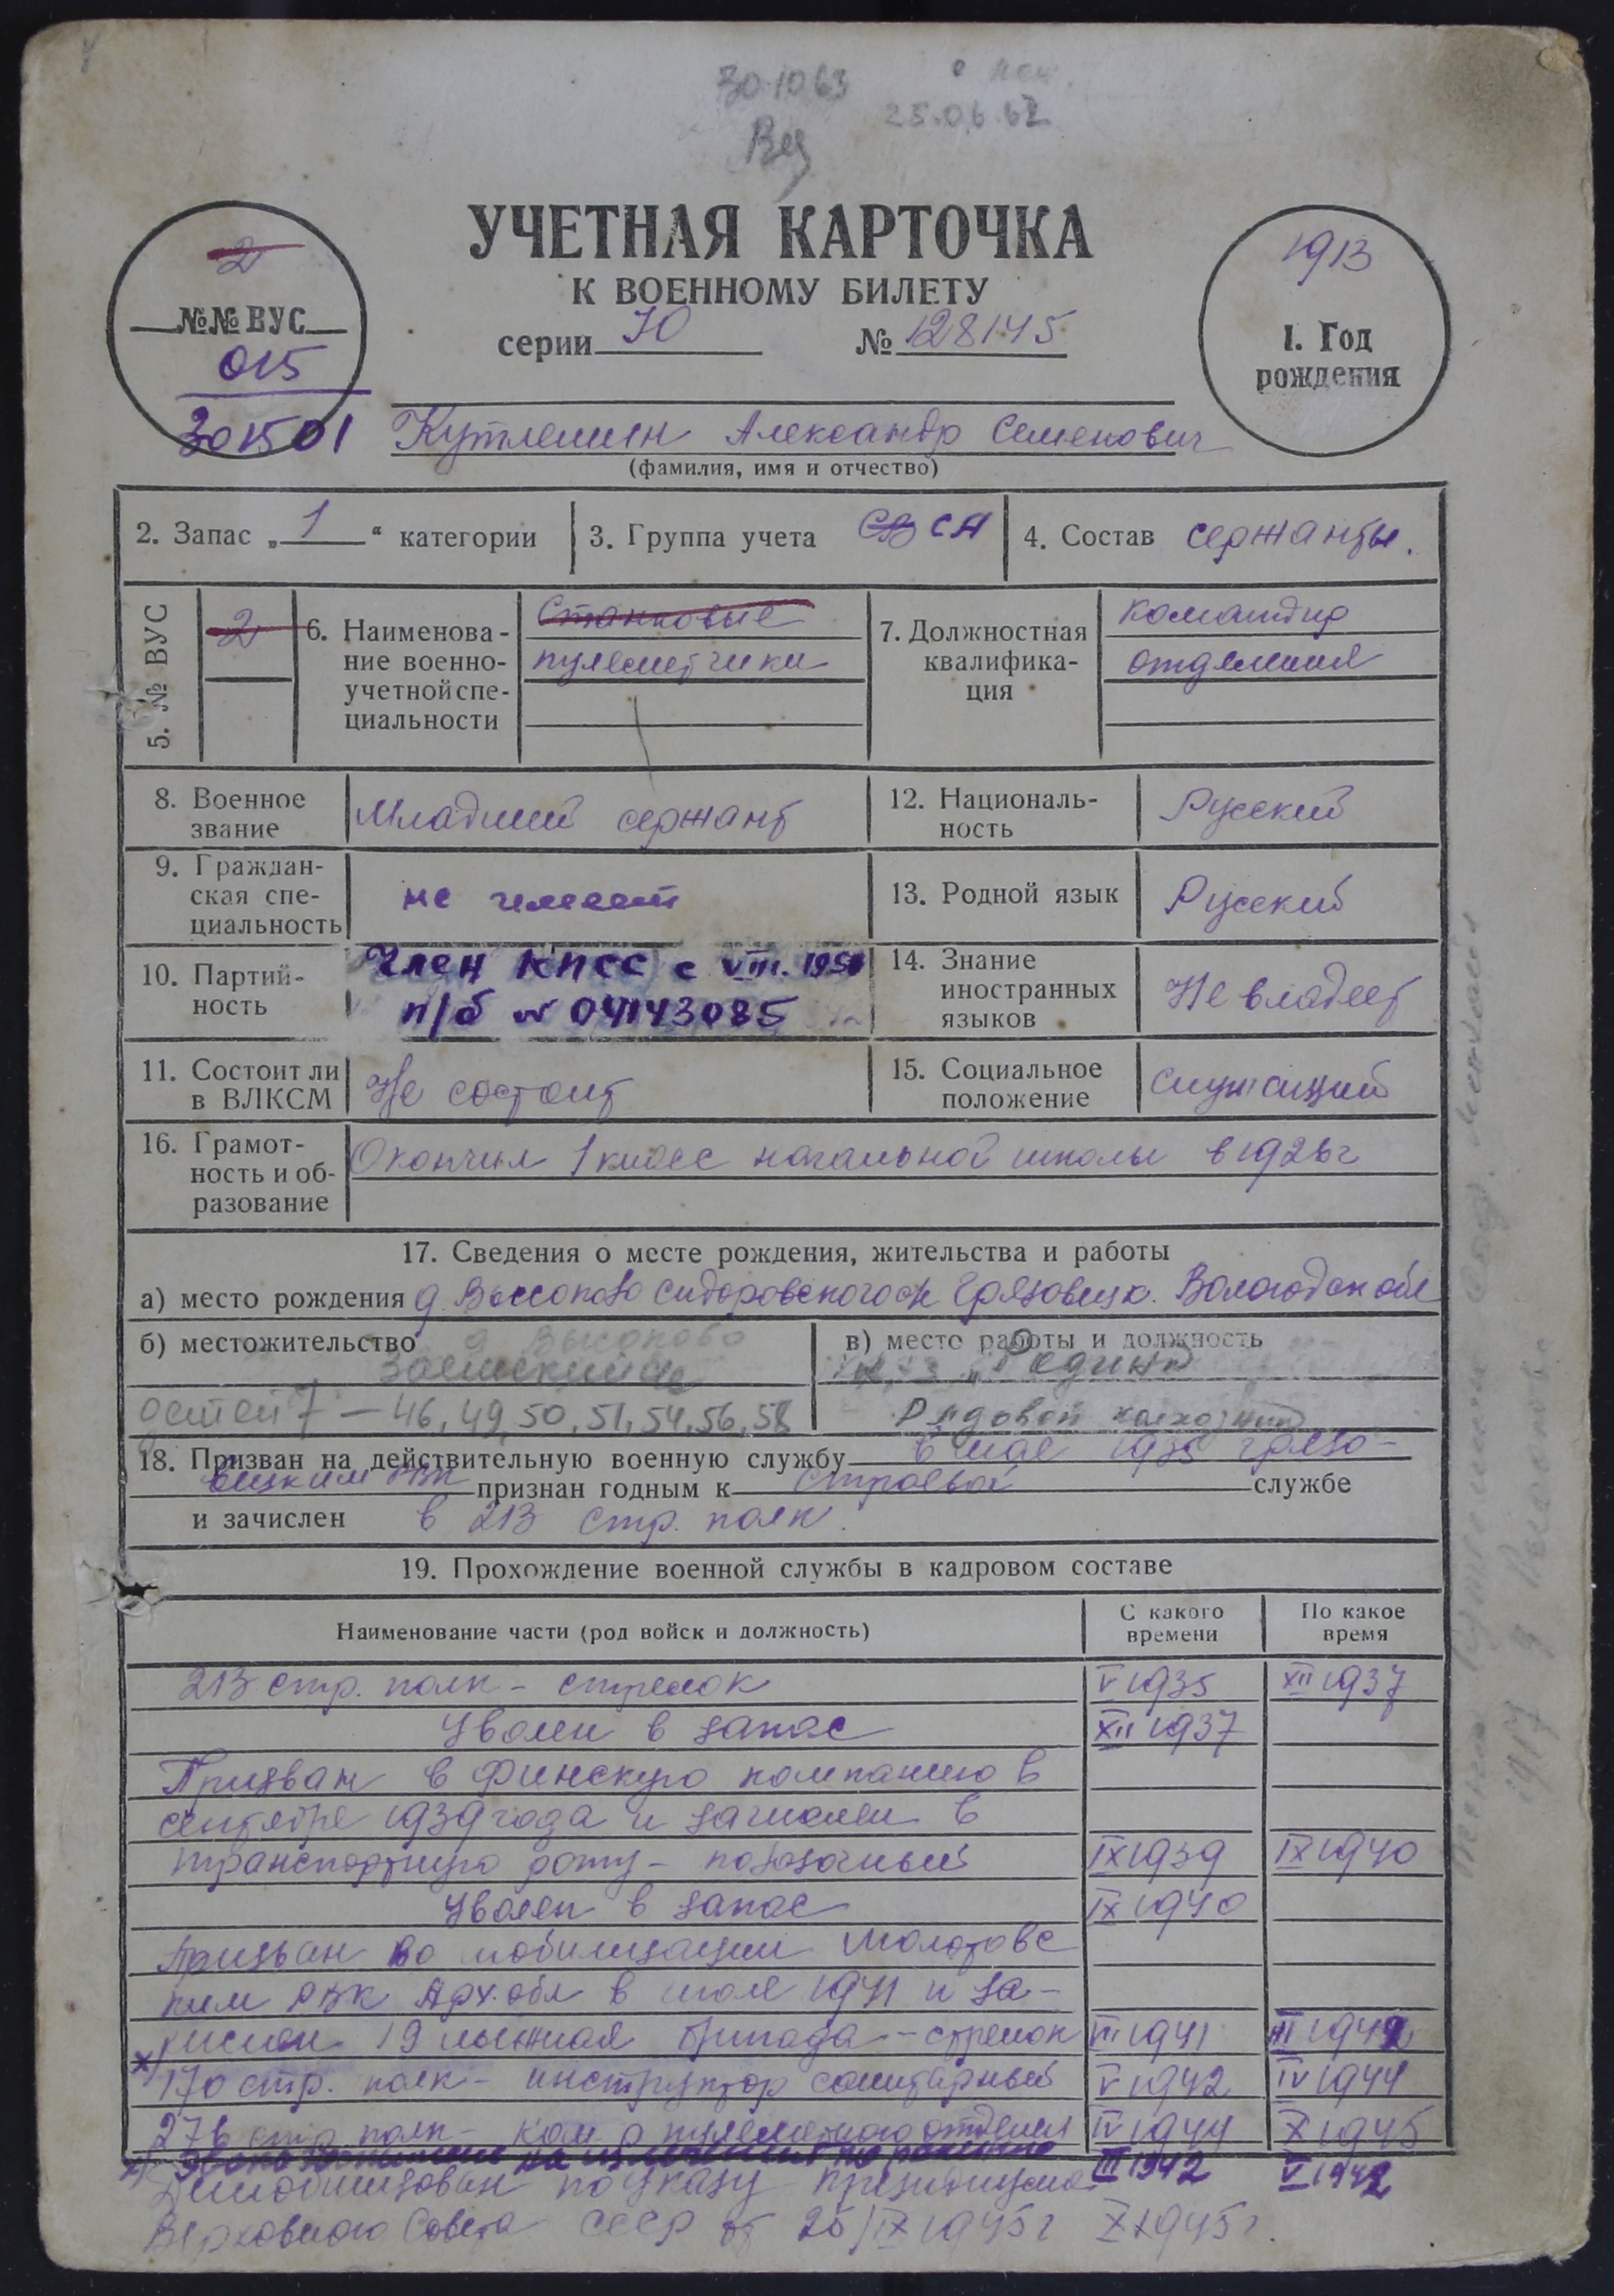 30.10.63
25.06.62
УЧЕТНАЯ КАРТОЧКА
К ВОЕННОМУ БИЛЕТУ
серии Ю № 128145
2
№№ ВУС
015
301501
1913
1. Год
рождения
Кутлешин Александр Семенович
(фамилия, имя и отчество)
2. Запас „1“ категории
3. Группа учета СВ СА
4. Состав сержанты.
5. № ВУС 2
6. Наименова-
ние военно-
учетной спе-
циальности
Станковые
пулеметчики
7. Должностная
квалифика-
ция
командир
отделения
8. Военное
звание
Младший сержант
12. Националь-
ность
Русский
9. Граждан-
ская спе-
циальность
не имеет
13. Родной язык
Русский
10. Партий-
ность
Член КПСС с VIII.
п/б № 04143085
14. Знание
иностранных
языков
Не владеет
11. Состоит ли
в ВЛКСМ
Не состоит
15. Социальное
положение
служащий
16. Грамот-
ность и об-
разование
Окончил 1 класс начальной школы в 1926г
17. Сведения о месте рождения, жительства и работы
а) место рождения д Сидоровского Грязовецк. Вологодск обл
б) местожительство д Высоково
детей 7 – 46, 49, 50, 51, 54, 56, 58
в) место работы и должность
„Родина
Рядовой колхозник
18. Призван на действительную военную службу в мае 1935 Грязо-
вецким РВК признан годным к строевой службе
и зачислен в 213 стр. полк.
19. Прохождение военной службы в кадровом составе
Наименование части (род войск и должность)
С какого
времени
По какое
время
213 стр. полк – стрелок V 1935 XII 1937
Уволен в запас XII 1937
Призван в Финскую компанию в
сентябре 1939 года и зачислен в
транспортную роту – IX 1939 IX 1940
Уволен в запас IX 1940
Призван по мобилизации Молотовс
ким РВК Арх. обл в июле 1941 и за-
числен 19 лыжная бригада – стрелок VII 1941 III 1942
х) 170 стр. полк – инструктор санитарный V 1942 IV 1944
276 стр полк – ком-р пулеметного отделен IV 1944 X 1945
х) на излечении по ранению III 1942 V 1942
Демобилизован по указу президиума
Верховного Совета СССР от 25/IX 1945г X 1945г.
1917 д